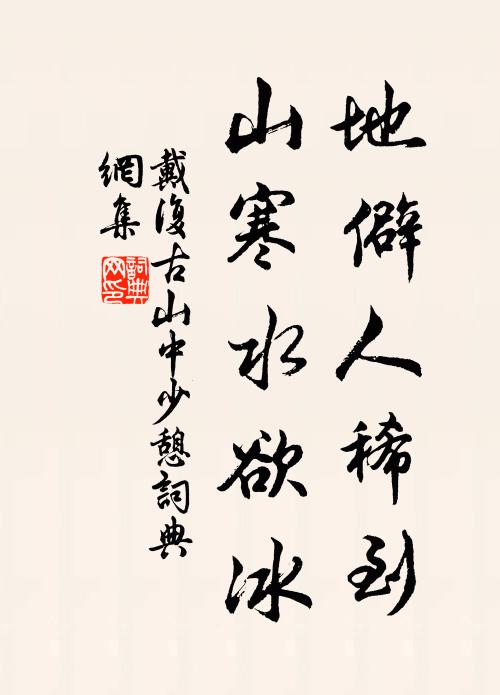 地僻人稀到
山寒水欲冰
戴復古山中少憩詞典
網集
詞典网印